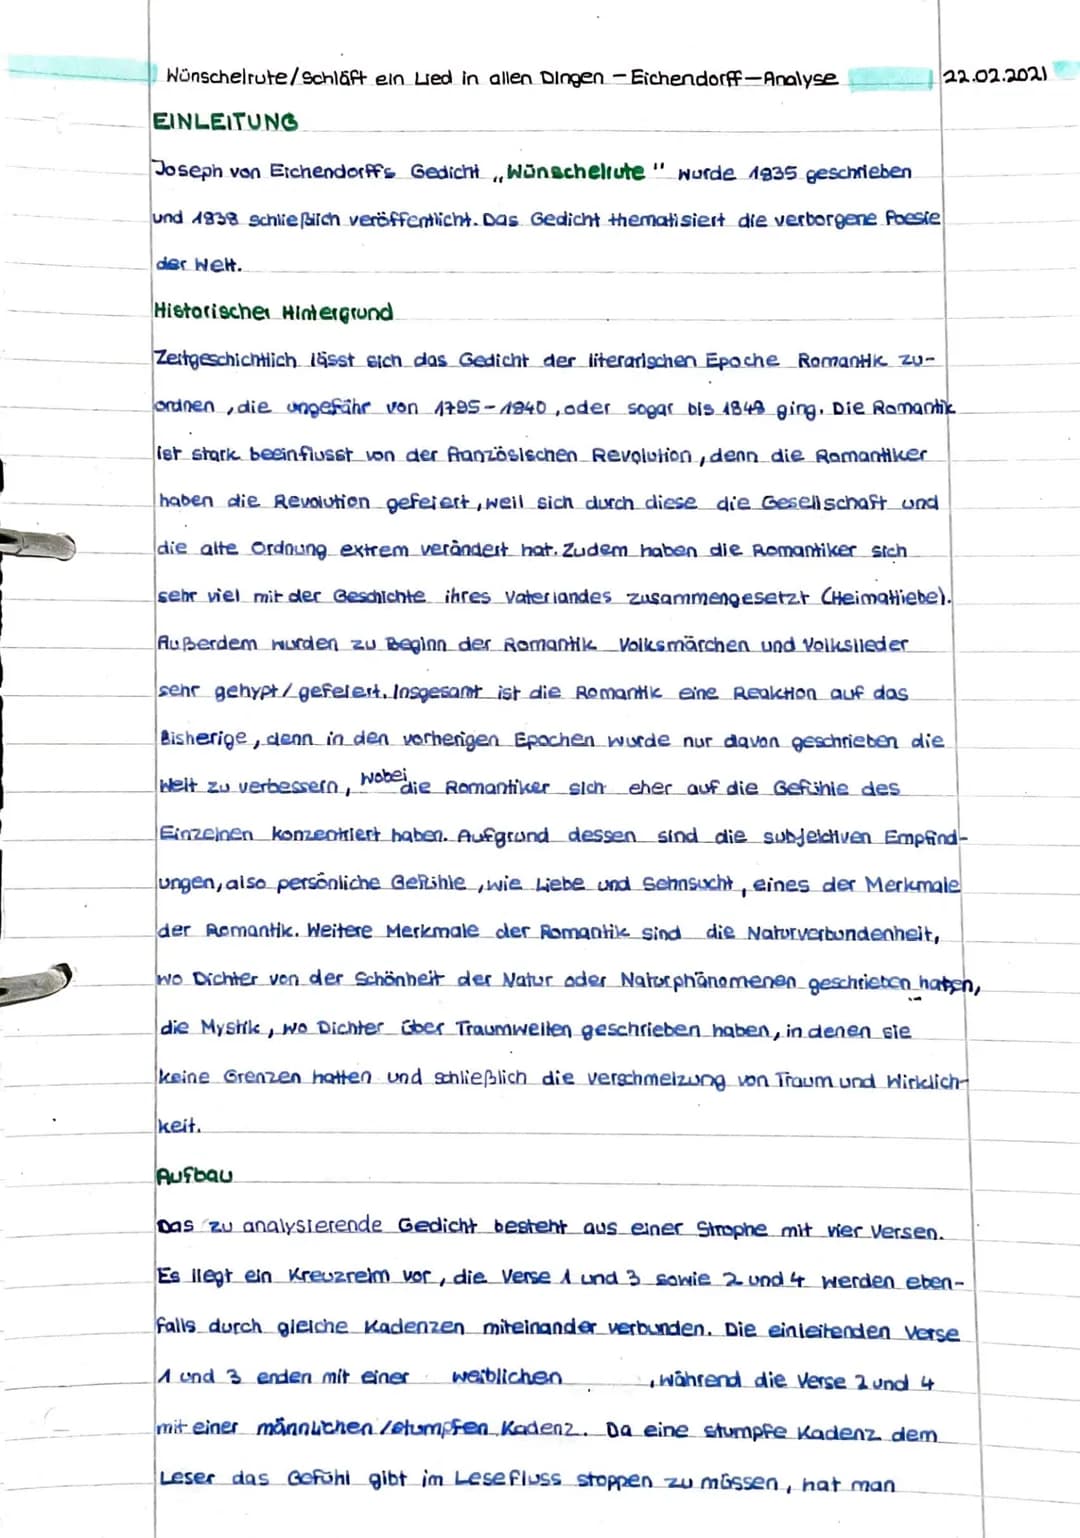 Wünschelrute/Schläft ein Lied in allen Dingen - Eichendorff - Analyse 22.02.2021
EINLEITUNG
Joseph von Eichendorffs Gedicht „Wünschelrute" wurde 1835 geschrieben
und 1838 schließlich veröffentlicht. Das Gedicht thematisiert die verborgene Poesie
der Welt.
Historischer Hintergrund
Zeitgeschichtlich lässt sich das Gedicht der literarischen Epoche Romantik zu-
ordnen, die ungefähr von 1795-1840, oder sogar bis 1848 ging. Die Romantik
ist stark beeinflusst von der französischen Revolution, denn die Romantiker
haben die Revolution gefeiert, weil sich durch diese die Gesellschaft und
die alte Ordnung extrem verändert hat. Zudem haben die Romantiker sich
sehr viel mit der Geschichte ihres Vaterlandes zusammengesetzt (Heimatliebe).
Außerdem wurden zu Beginn der Romantik Volksmärchen und Volkslieder
sehr gehypt/gefeiert. Insgesamt ist die Romantik eine Reaktion auf das
Bisherige, denn in den vorherigen Epochen wurde nur davon geschrieben die
Welt zu verbessern, wobei die Romantiker sich eher auf die Gefühle des
Einzelnen konzentriert haben. Aufgrund dessen sind die subjektiven Empfind-
ungen, also persönliche Gefühle, wie Liebe und Sehnsucht, eines der Merkmale
der Romantik. Weitere Merkmale der Romantik sind die Naturverbundenheit,
wo Dichter von der Schönheit der Natur oder Naturphänomenen geschrieben haben,
die Mystik, wo Dichter über Traumwelten geschrieben haben, in denen sie
keine Grenzen hatten und schließlich die Verschmelzung von Traum und Wirklich-
keit.
Aufbau
Das zu analysierende Gedicht besteht aus einer Strophe mit vier Versen.
Es liegt ein Kreuzreim vor, die Verse 1 und 3 sowie 2 und 4 werden eben-
falls durch gleiche Kadenzen miteinander verbunden. Die einleitenden Verse
1 und 3 enden mit einer weiblichen , während die Verse 2 und 4
mit einer männlichen/stumpfen Kadenz. Da eine stumpfe Kadenz dem
Leser das Gefühl gibt im Lesefluss stoppen zu müssen, hat man